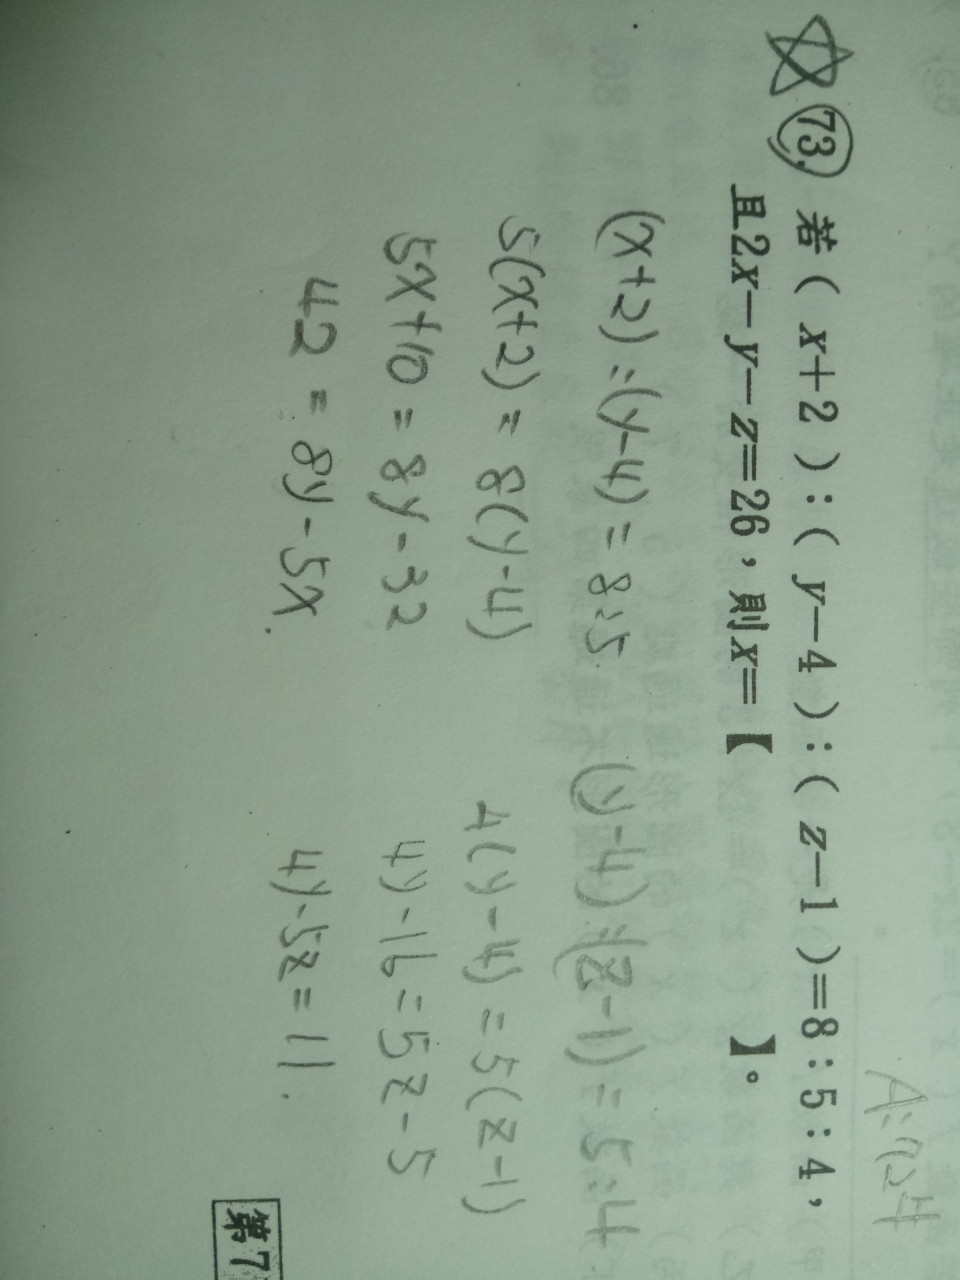 A:124
73. 若(x+2):(y-4):(z-1)=8:5:4,
且2x-y-z=26,則x=【 】。
(x+2):(y-4)=8:5 (y-4):(z-1)=5:4
5(x+2)=8(y-4) 4(y-4)=5(z-1)
5x+10=8y-32 4y-16=5z-5
42=8y-5x. 4y-5z=11.
第7